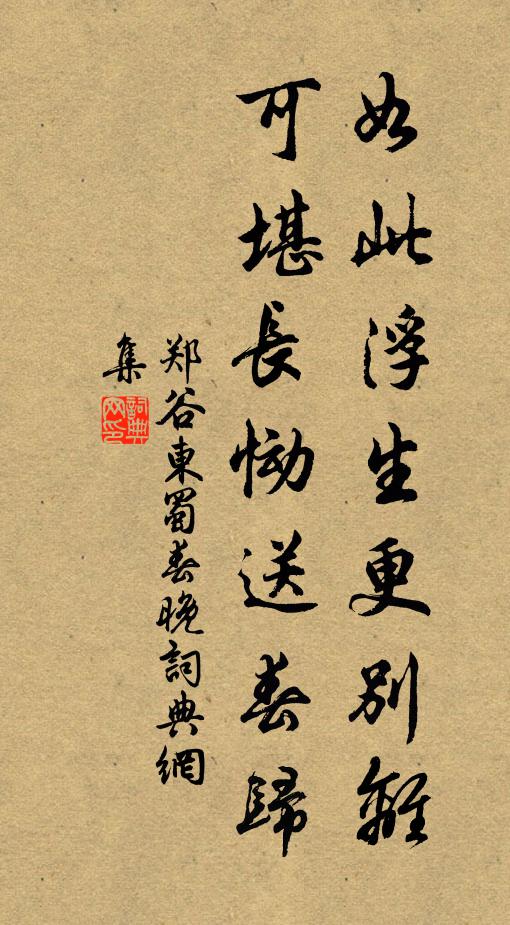 如此浮生更別離
可堪長慟送春歸
郑谷東蜀春晚詞典網
集
詞典
网印